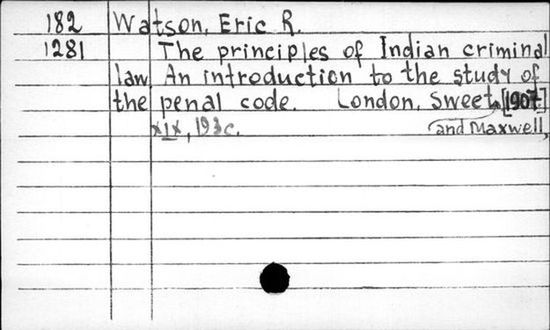 182 Watson, Eric R.
1281 The principles of Indian criminal
law. An introduction to the study of
the penal code. London, Sweet [1907]
xix, 193 c. and Maxwell,